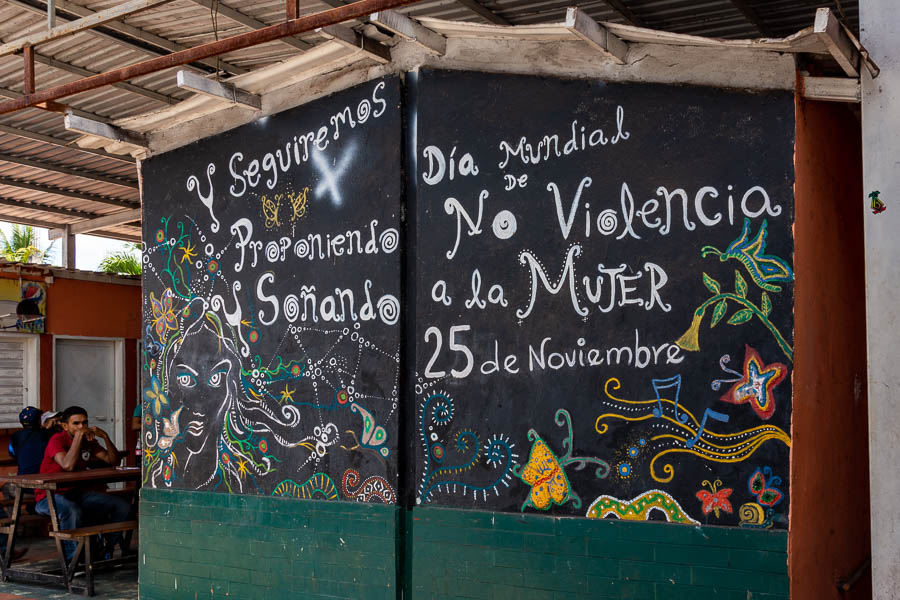 Y Seguiremos
X
Proponiendo
Y Soñando
Día Mundial
de
No Violencia
a la MUJER
25 de Noviembre